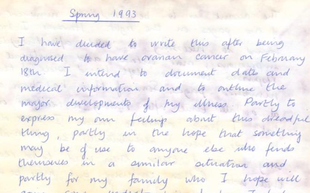 Spring 1993
I have decided to write this after being
diagnosed to have ovarian cancer on February
18th I intend to document dates and
medical information and to outline the
major developments of my illness. Partly to
express my own feelings about this dreadful
thing, partly in the hope that something
may be of use to anyone else who finds
themselves in a similar situation and
partly for my family who I hope will